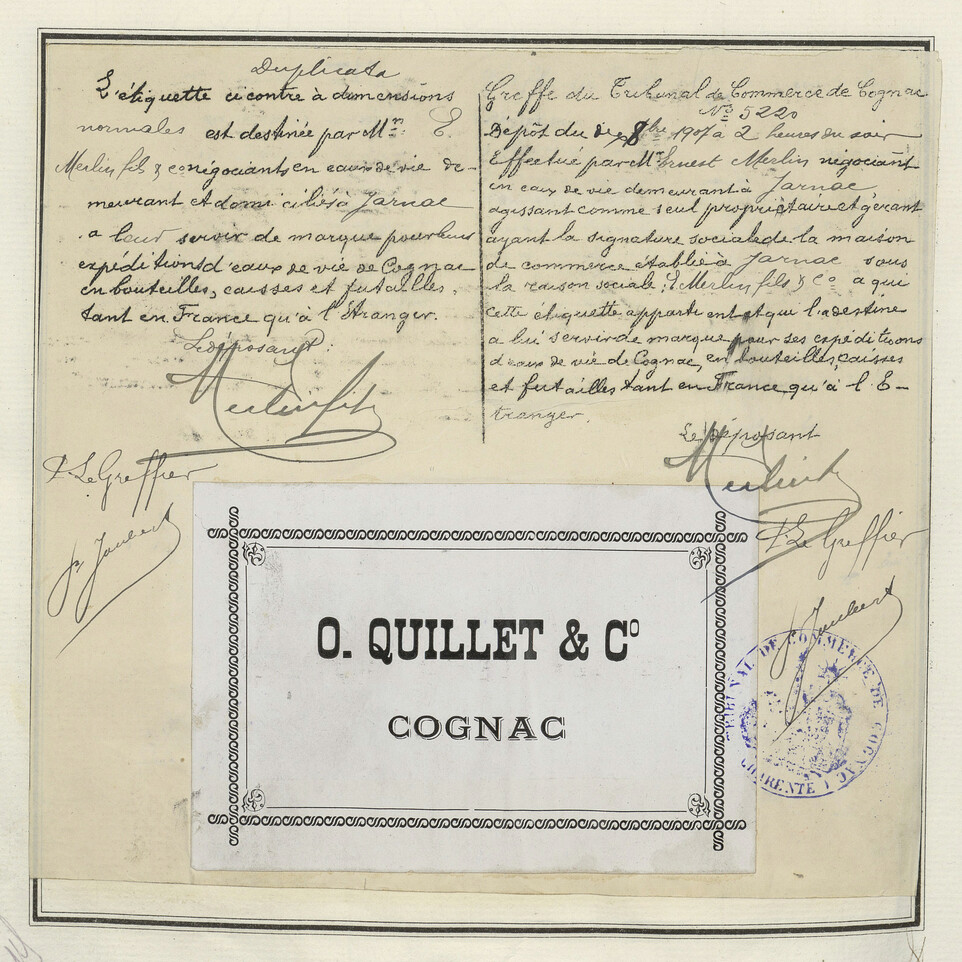 Duplicata
L'étiquette ci contre à dimensions
normales est destinée par Mrs E.
Merlin fils & Co négociants en eaux de vie de-
meurant et domiciliés à Jarnac
a leur servir de marque pour leurs
expéditions d'eaux de vie de Cognac
en bouteilles, caisses et futailles,
tant en France qu'à l'Étranger.
Le déposant:
Merlin fils
P. Le Greffier
Jh Joubert
Greffe du Tribunal de Commerce de Cognac
No 5220
Dépôt du dix 8bre 1907 à 2 heures du soir
Effectué par Mr Ernest Merlin négociant
en eaux de vie demeurant à Jarnac
agissant comme seul propriétaire et gérant
ayant la signature sociale de la maison
de commerce établie à Jarnac sous
la raison sociale: E Merlin fils & Co a qui
cette étiquette appartient et qui la destine
a lui servir de marque pour ses expéditions
d'eaux de vie de Cognac, en bouteilles, caisses
et futailles tant en France qu'à l'É-
tranger.
Le déposant
Merlin fils
P. Le Greffier
Jh Joubert
O. QUILLET & Co
COGNAC
TRIBUNAL DE COMMERCE DE COGNAC
CHARENTE